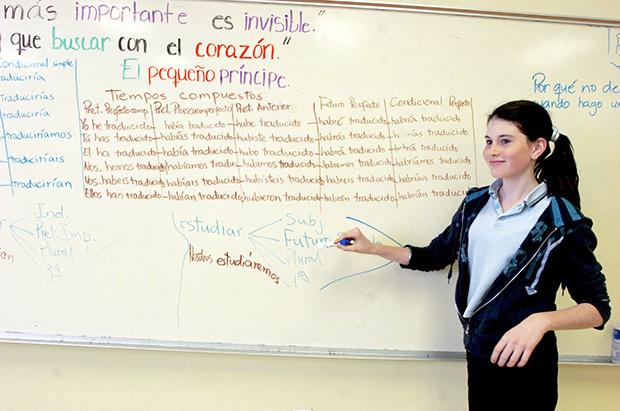 más importante es invisible."
que buscar con el corazón."
El pequeño príncipe.
Condicional simple
traduciría
Traducirías
Traduciría
Traduciríamos
traduciríais
Traducirían
Tiempos compuestos
Pret. Perfecto comp. Pret. Pluscuamperfecto Pret. Anterior Futuro Perfecto Condicional Perfecto
Yo he traducido había traducido hube traducido habré traducido habría traducido
Tú has traducido habías traducido hubiste traducido habrás traducido habrías traducido
Él ha traducido había traducido hubo traducido habrá traducido habría traducido
Nos. hemos traducido habíamos tradu hubimos traducido habremos traducido habríamos traducido
Vos. habeis traducido habíais traducido hubisteis traducido habreis traducido habríais traducido
Ellos han traducido habían traducido hubieron traducido habrán traducido habrían traducido
Por qué no de
cuando hago un
Ind.
Pret. Imp.
Plural
3ª
estudiar
Subj.
Futuro
Plural
1ª
Nosotros estudiáremos